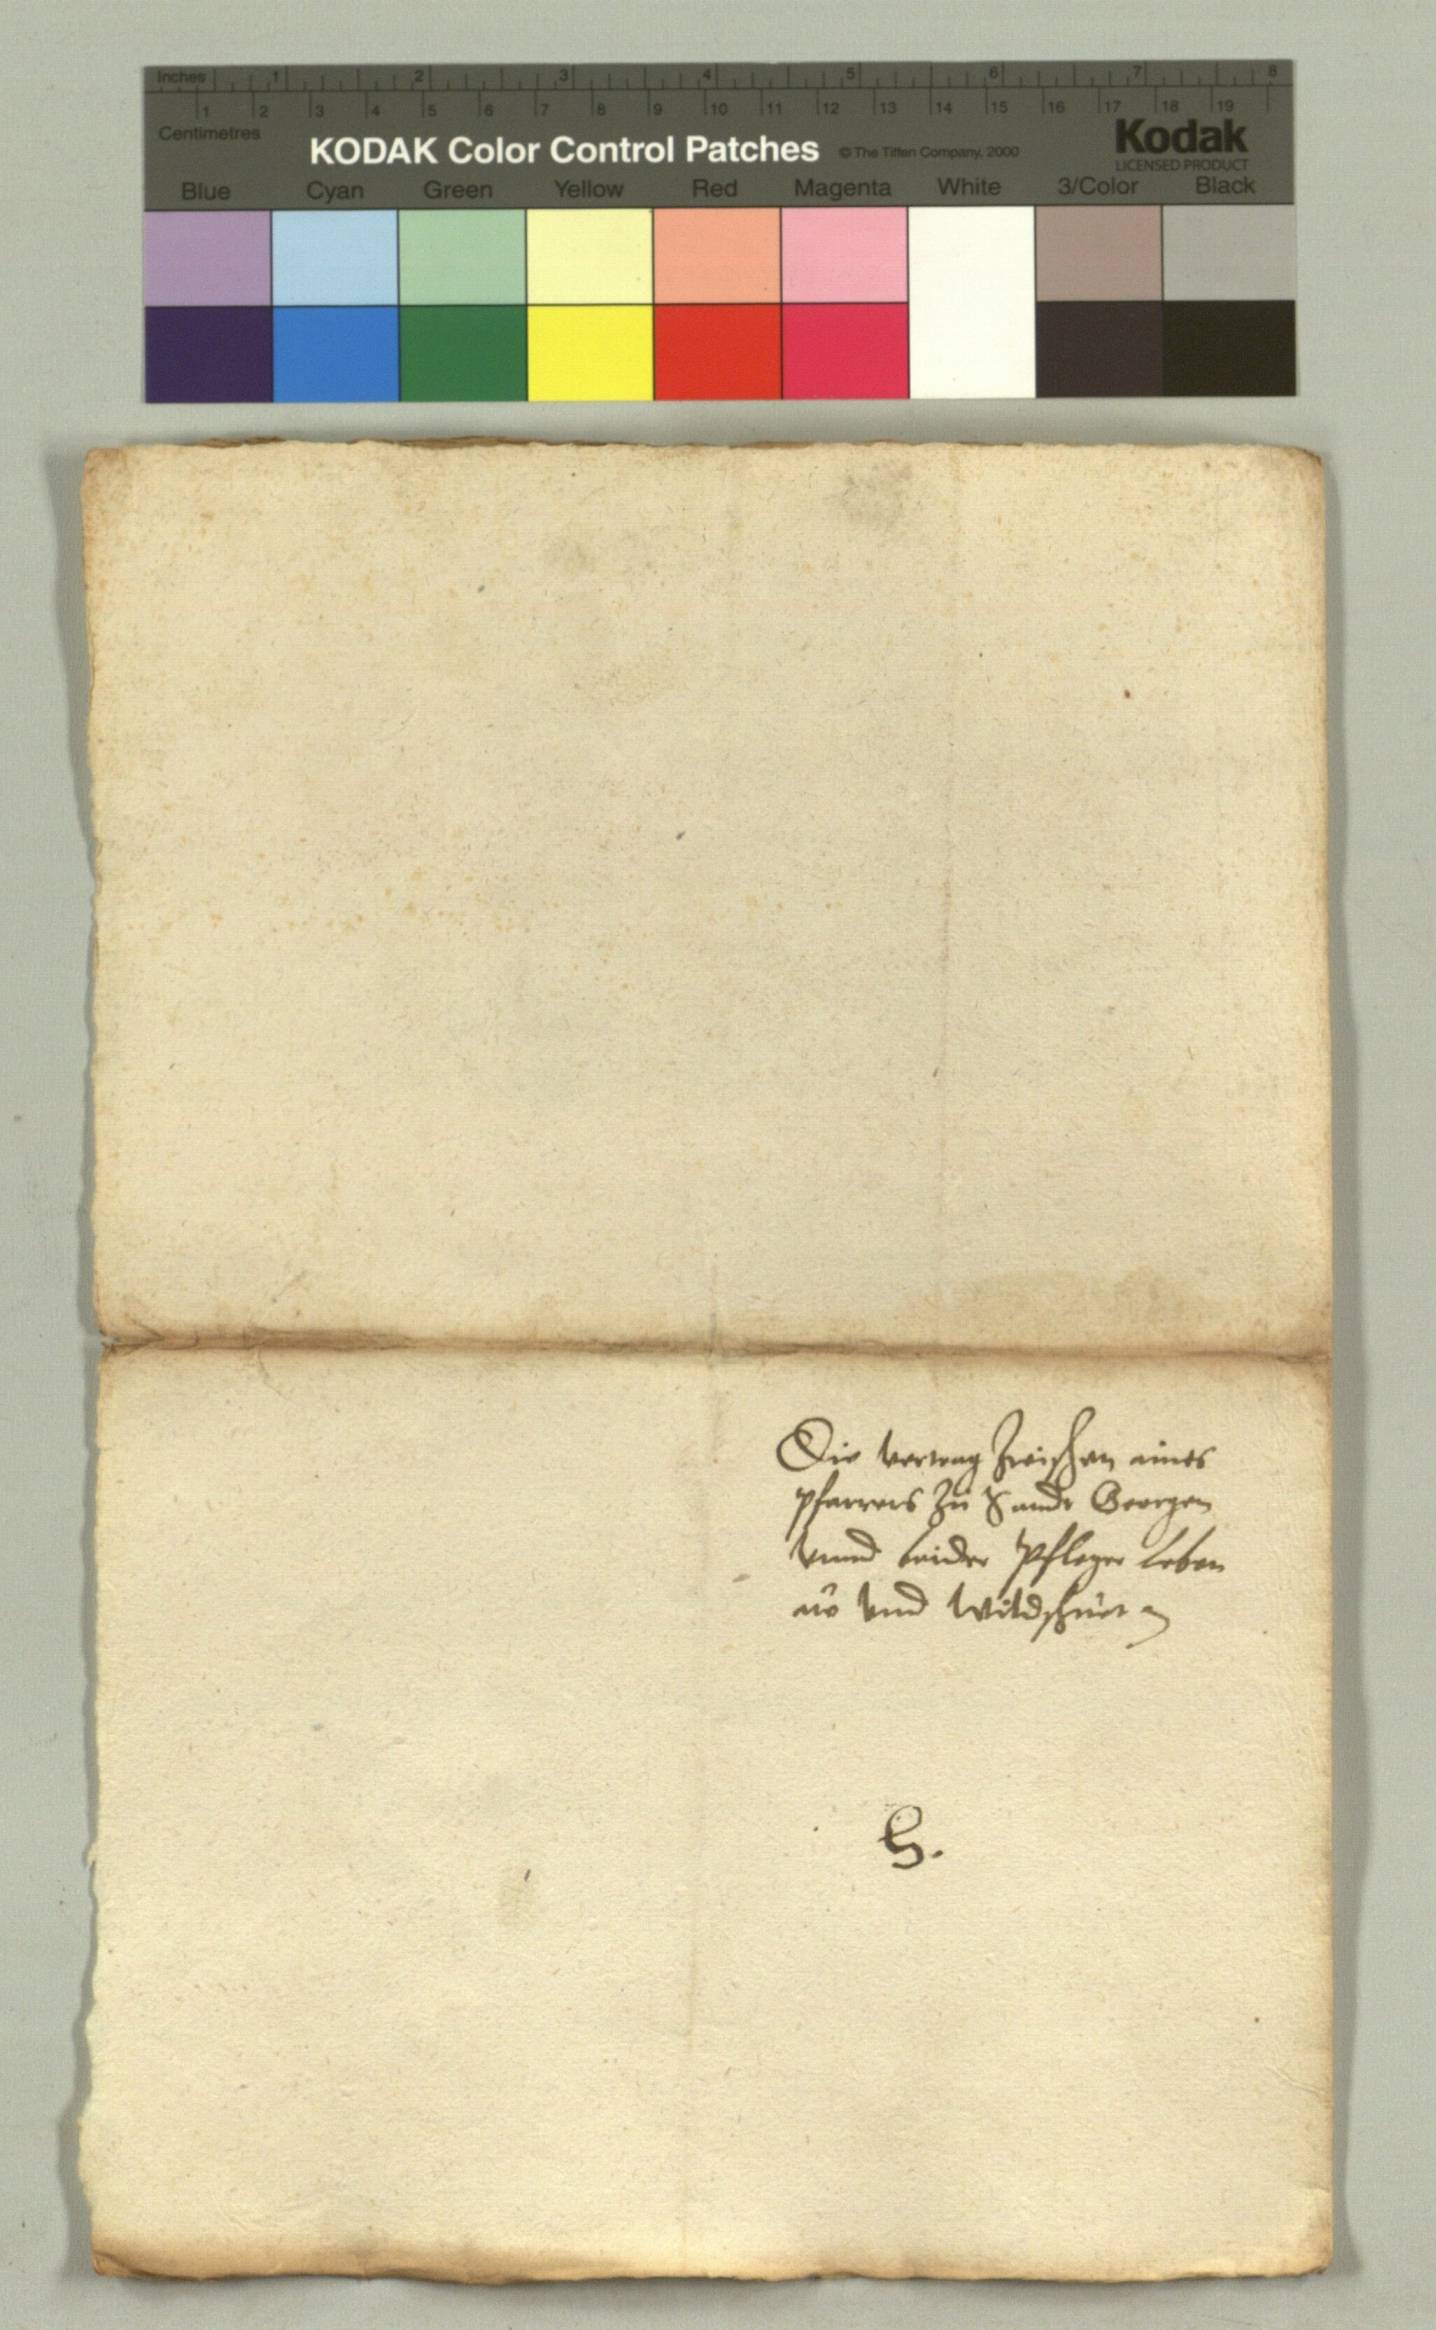 Inches 1 2 3 4 5 6 7 8
1 2 3 4 5 6 7 8 9 10 11 12 13 14 15 16 17 18 19
Centimetres
KODAK Color Control Patches © The Tiffen Company, 2000 Kodak
LICENSED PRODUCT
Blue Cyan Green Yellow Red Magenta White 3/Color Black
Die vertrag zwischen aines
pfarrers zu Sandt Georgen
vnnd beider Pfleger Leben
aw vnd Wildschuet